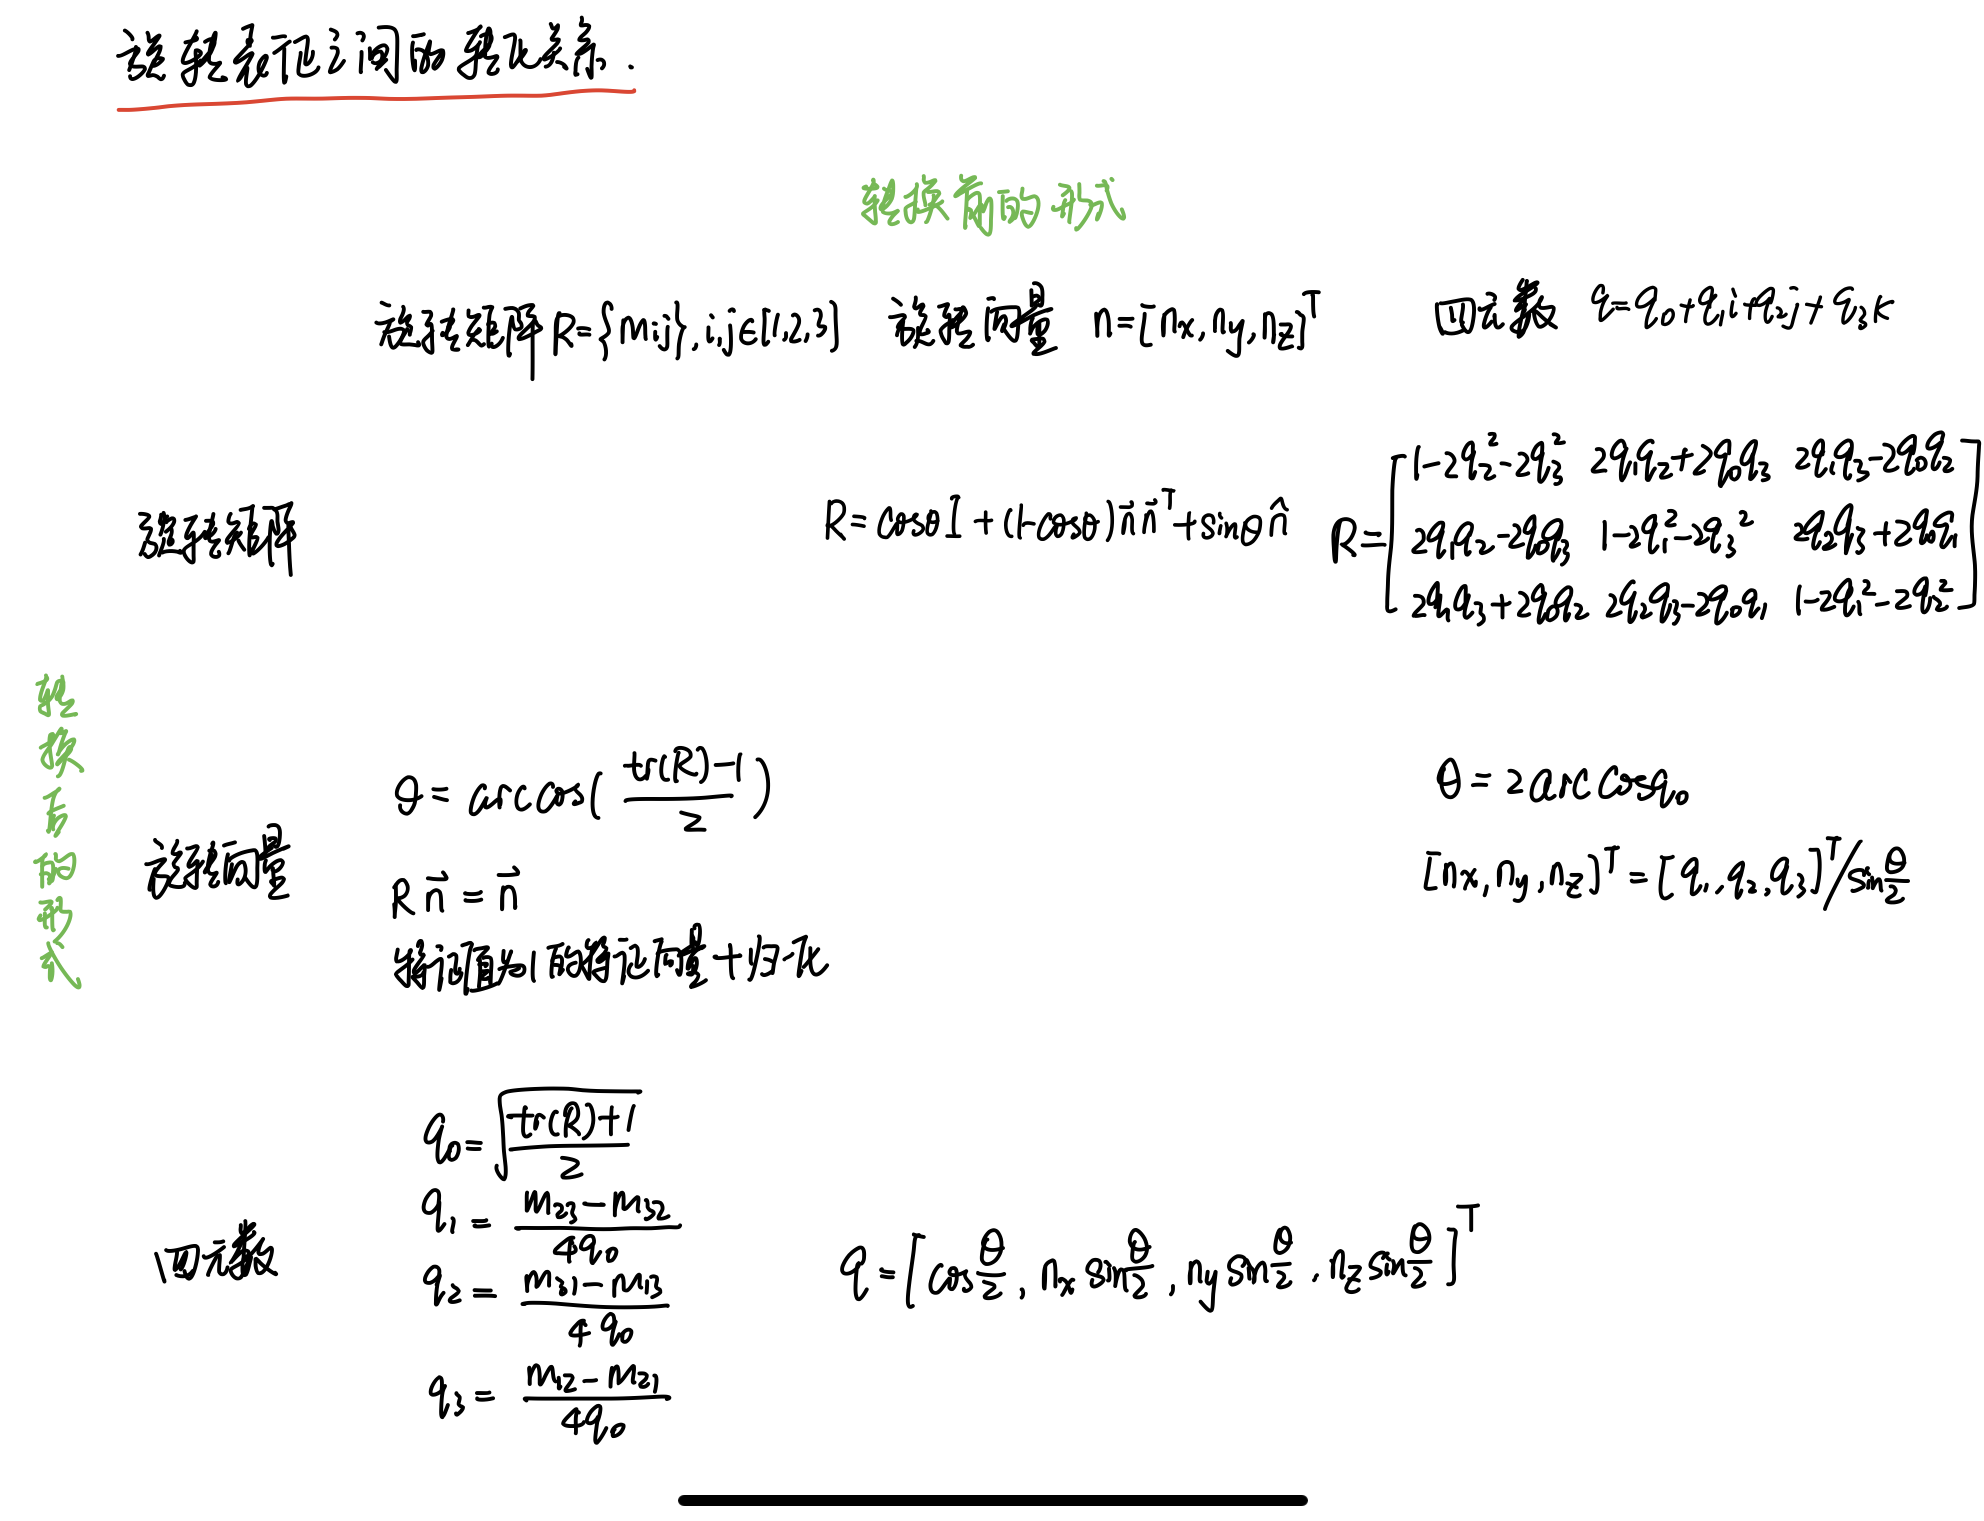 旋转表征之间的转化关系.
转换前的形式
旋转矩阵 R={mij},i,j∈[1,2,3] 旋转向量 n=[nx,ny,nz]ᵀ 四元数 q=q₀+q₁i+q₂j+q₃k
旋转矩阵 R=cosθI+(1-cosθ)n⃗n⃗ᵀ+sinθn̂ R=[1-2q₂²-2q₃² 2q₁q₂+2q₀q₃ 2q₁q₃-2q₀q₂
2q₁q₂-2q₀q₃ 1-2q₁²-2q₃² 2q₂q₃+2q₀q₁
2q₁q₃+2q₀q₂ 2q₂q₃-2q₀q₁ 1-2q₁²-2q₂²]
转换后的形式
旋转向量
θ=arccos((tr(R)-1)/2)
Rn⃗=n⃗
特征值为1的特征向量+归一化
θ=2arccosq₀
[nx,ny,nz]ᵀ=[q₁,q₂,q₃]ᵀ/sin(θ/2)
四元数
q₀=√((tr(R)+1)/2)
q₁=(m₂₃-m₃₂)/(4q₀)
q₂=(m₃₁-m₁₃)/(4q₀)
q₃=(m₁₂-m₂₁)/(4q₀)
q=[cos(θ/2),nx sin(θ/2),ny sin(θ/2),nz sin(θ/2)]ᵀ